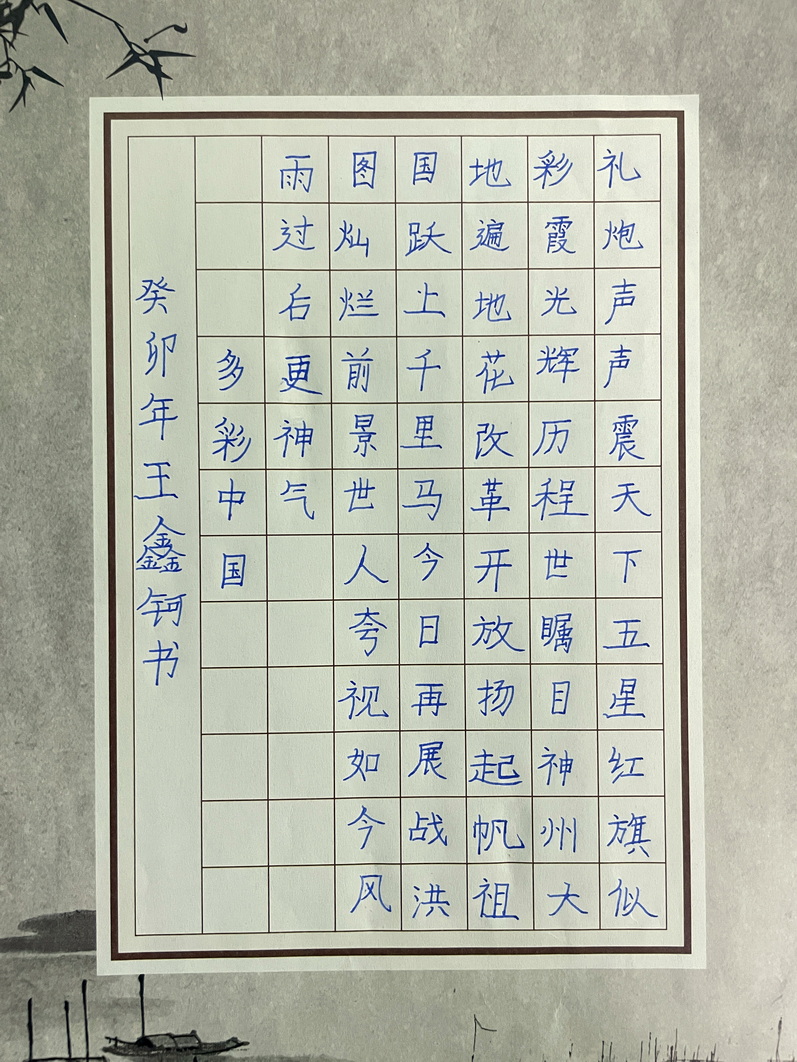 礼炮声声震天下五星红旗似
彩霞光辉历程世瞩目神州大
地遍地花改革开放扬起帆祖
国跃上千里马今日再展战洪
图灿烂前景世人夸视如今风
雨过后更神气
多彩中国
癸卯年王鑫钶书